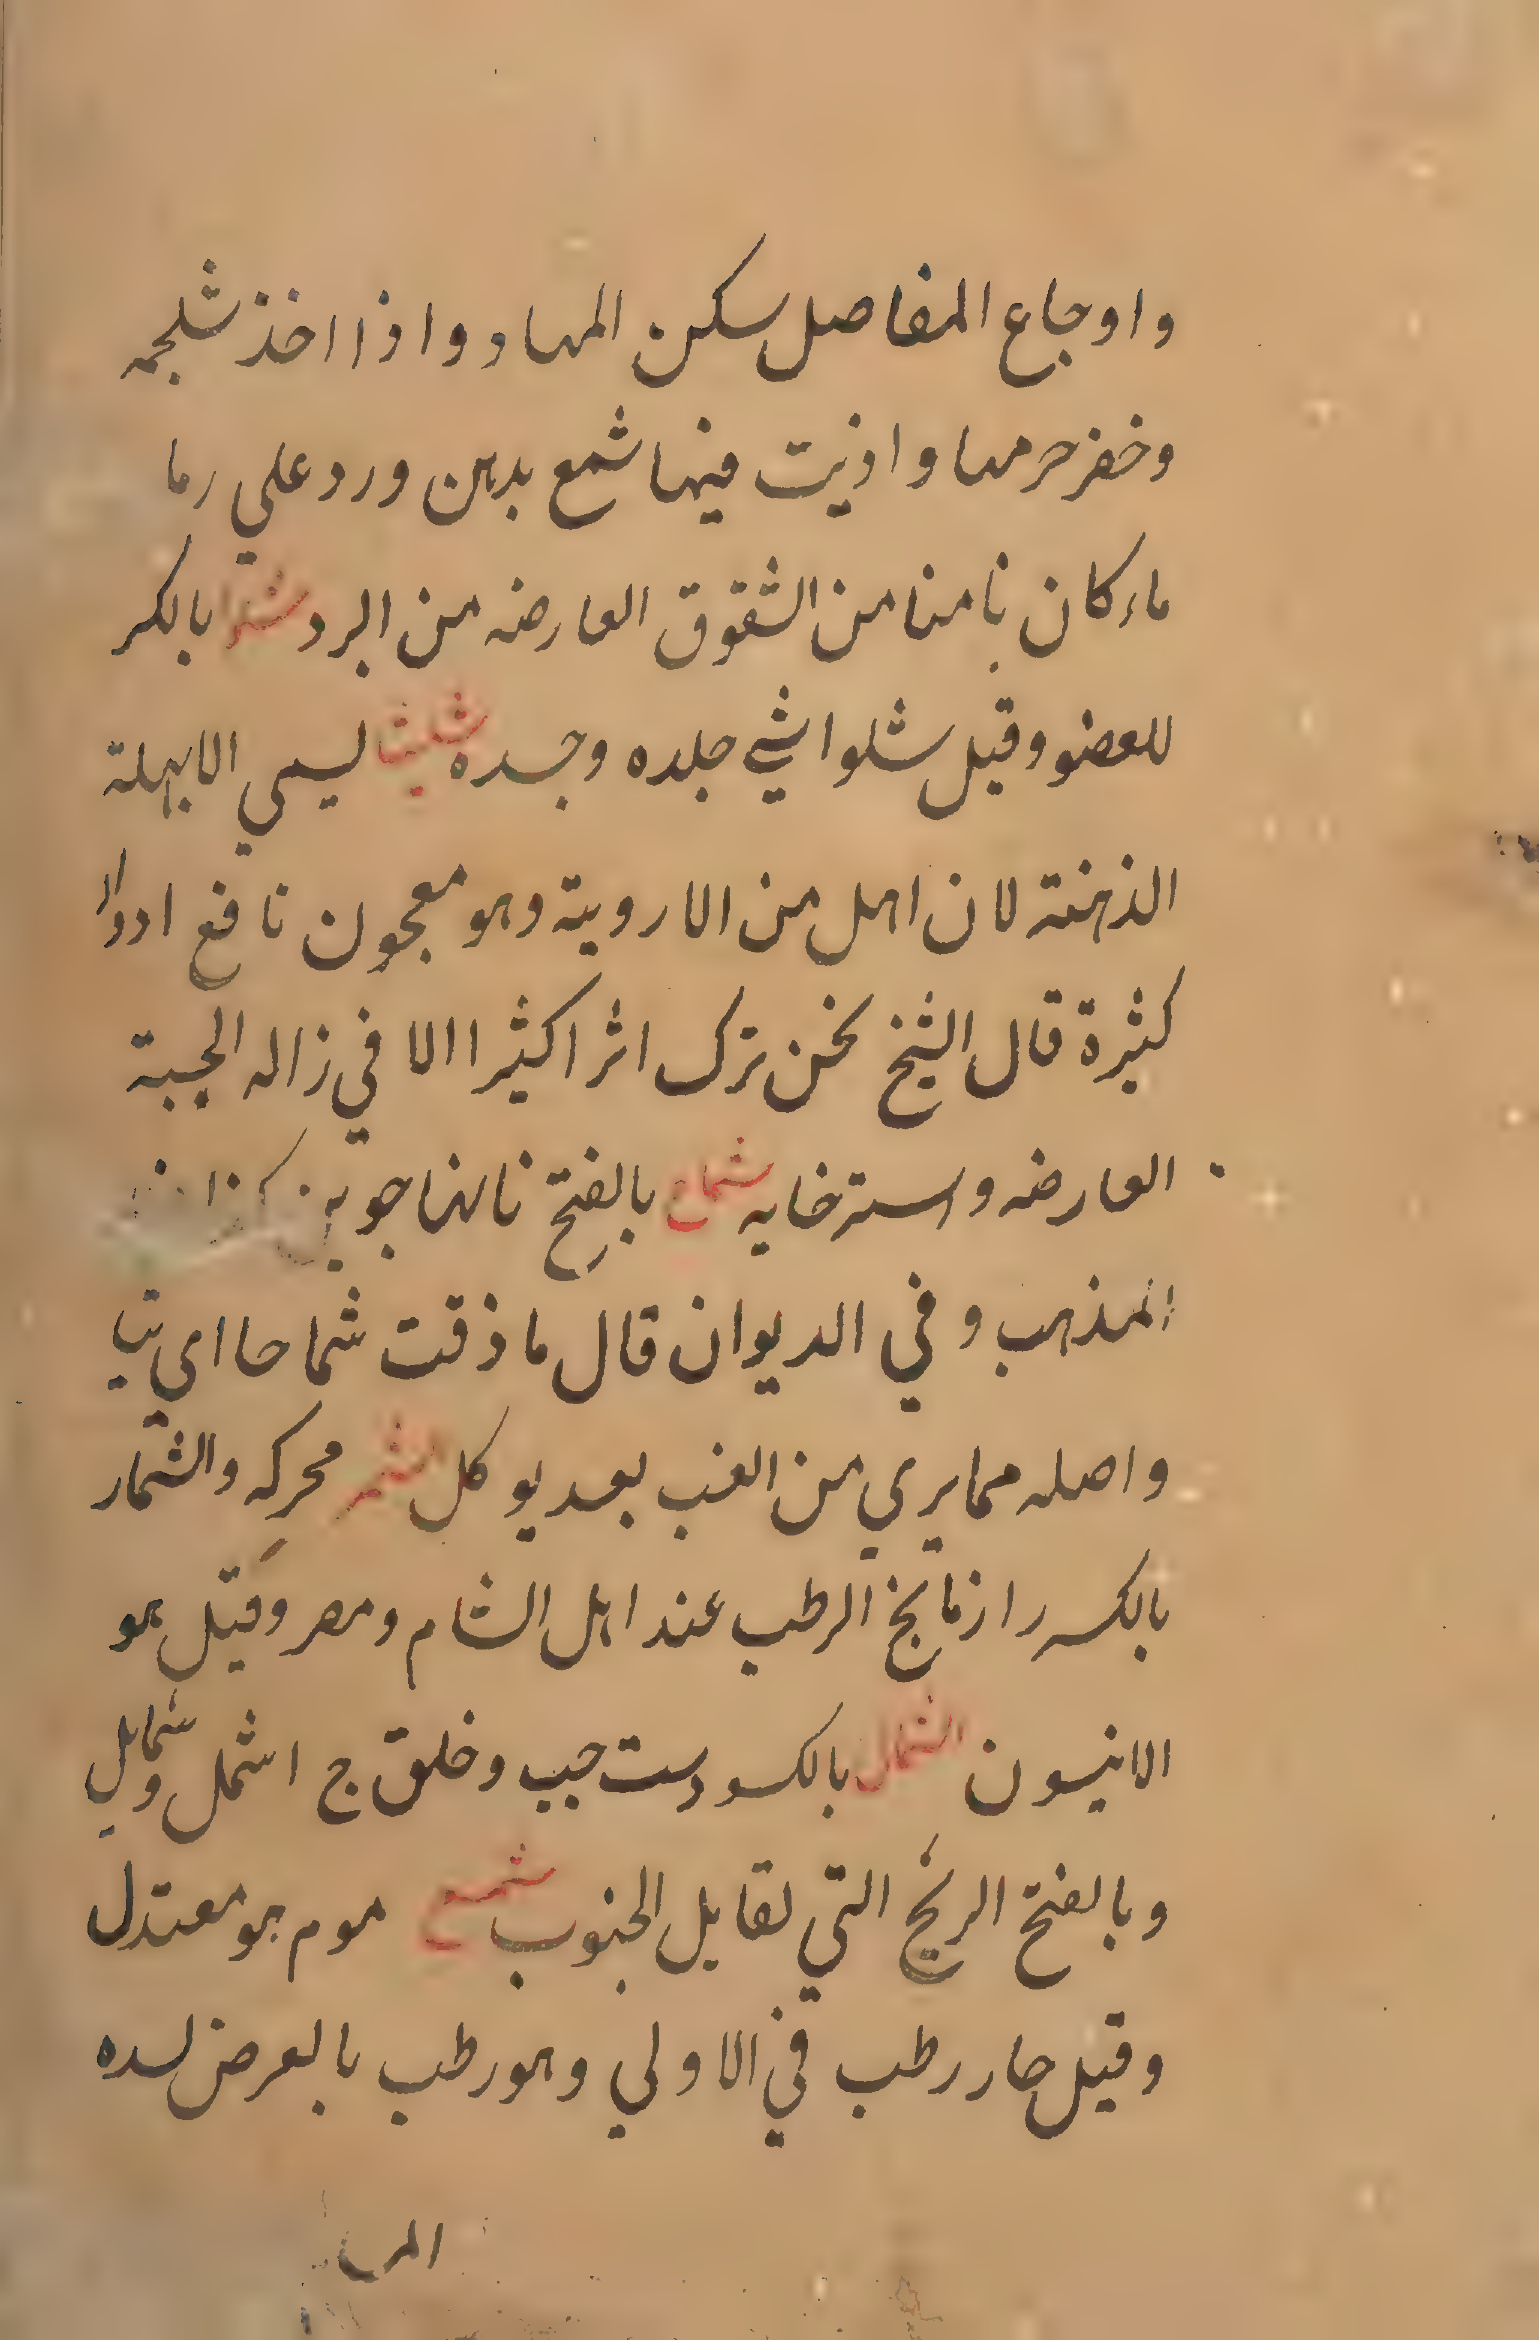 واوجاع المفاصل سكن المها وواذا اخذ شلجمه
وخفر حرمها واذيت فيها شمع بدهن ورد علي رما
ماء كان نامنا من الشقوق العارضه من البرد شلوا بالكر
للعضو وقيل شلوا شي جلده وجسده شليثا ليسمي الابهلة
الذهنة لان اهل من الاروية وهو معجون نافع ادوا
كثيرة قال الشيخ نحن ترك اثرا كثيرا الا في زاله الجبة
العارضه واسترخايه شماع بالفتح نانهاجوبه كذا
المذهب وفي الديوان قال ما ذقت شماحا اي شيا
واصله مما يري من العنب بعد يوكل الشمر محركه والشمار
بالكسر رازيانج الرطب عند اهل الشام ومصر وقيل هو
الانيسون الشمال بالكسر دست جپ وخلق ج اشمل وشمايل
وبالفتح الريح التي تقابل الجنوب شمع موم هو معتدل
وقيل حار رطب في الاولي وهو رطب بالعرض لسده